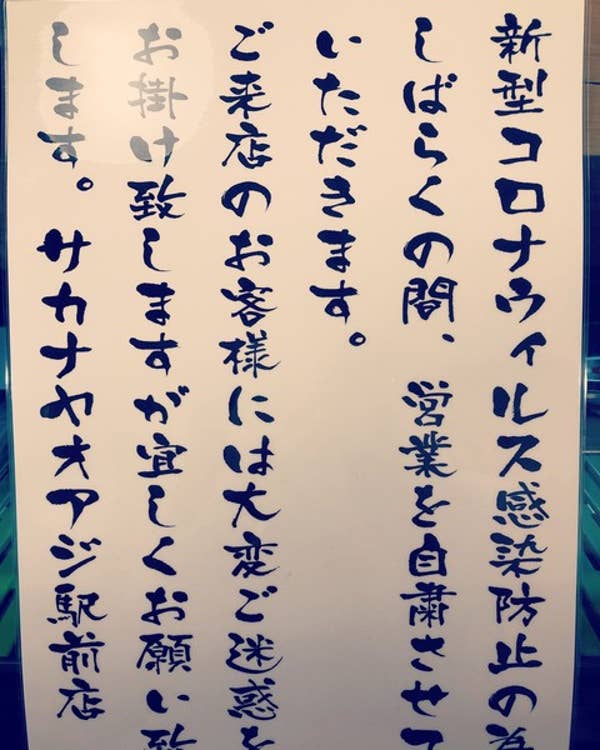 新型コロナウィルス感染防止の為
しばらくの間、営業を自粛させて
いただきます。
ご来店のお客様には大変ご迷惑を
お掛け致しますが宜しくお願い致
します。サカナヤオアジ駅前店